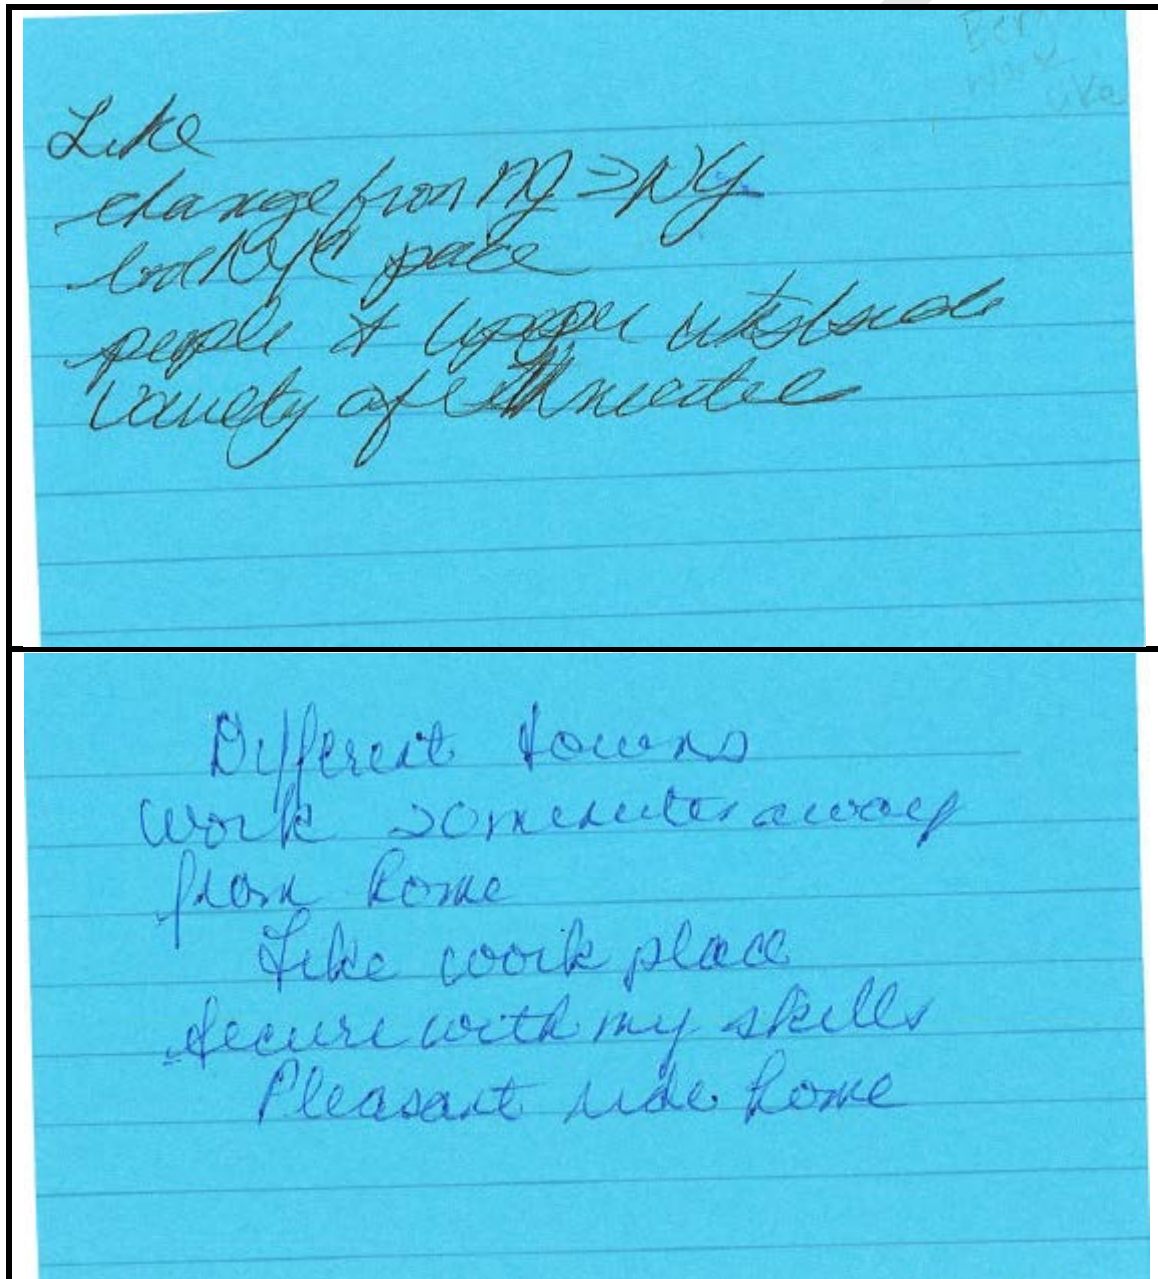 Like
change from NJ => NY
NYC pace
people of upper west side
Variety of
Different towns
work 20 minutes away
from home
Like work place
Secure with my skills
Pleasant ride home